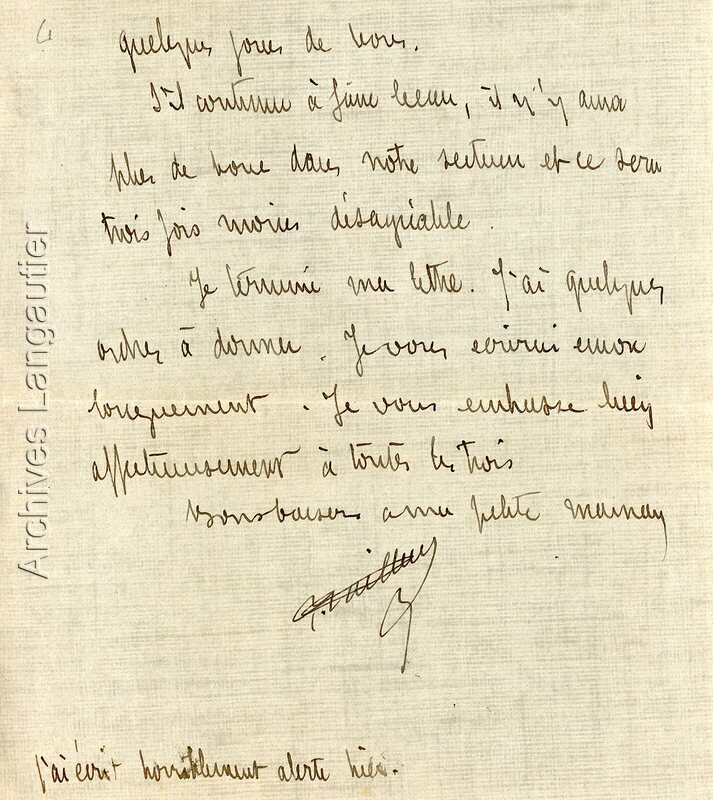 quelques jours de vous.
S'il continue à faire beau, il n'y aura
plus de boue dans notre secteur et ce sera
trois fois moins désagréable.
Je termine ma lettre. J'ai quelques
ordres à donner. Je vous écrirai encore
longuement. Je vous embrasse bien
affectueusement à toutes les trois
Bons baisers à ma petite maman
J'ai écrit horriblement alerte hier.
Archives Langautier